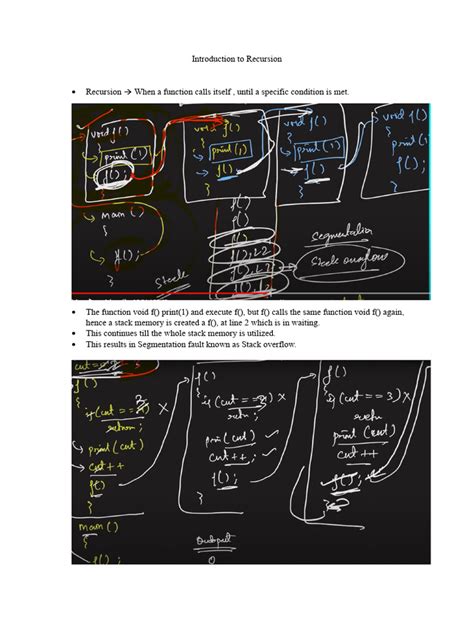 Introduction to Recursion
• Recursion → When a function calls itself , until a specific condition is met.
void f()
{
print(1)
f();
}
main()
{
f();
void f()
{
print(1)
f()
}
void f()
{
print(1)
f()
}
void f()
{
print(1)
f();
}
f()
f()
f()
f(); L2
f(); L2
f(); L2
Stack
Segmentation
Stack overflow
• The function void f() print(1) and execute f(), but f() calls the same function void f() again,
hence a stack memory is created a f(), at line 2 which is in waiting.
• This continues till the whole stack memory is utilized.
• This results in Segmentation fault known as Stack overflow.
f()
{
if(cnt ==
return;
print(cnt)
cnt++
f()
}
main()
{
f();
f()
{
if(cnt ==3)
return;
print(cnt)
cnt++;
f();
}
f()
{
if(cnt ==3)
return
print(cnt)
cnt++
f();
}
Output
0